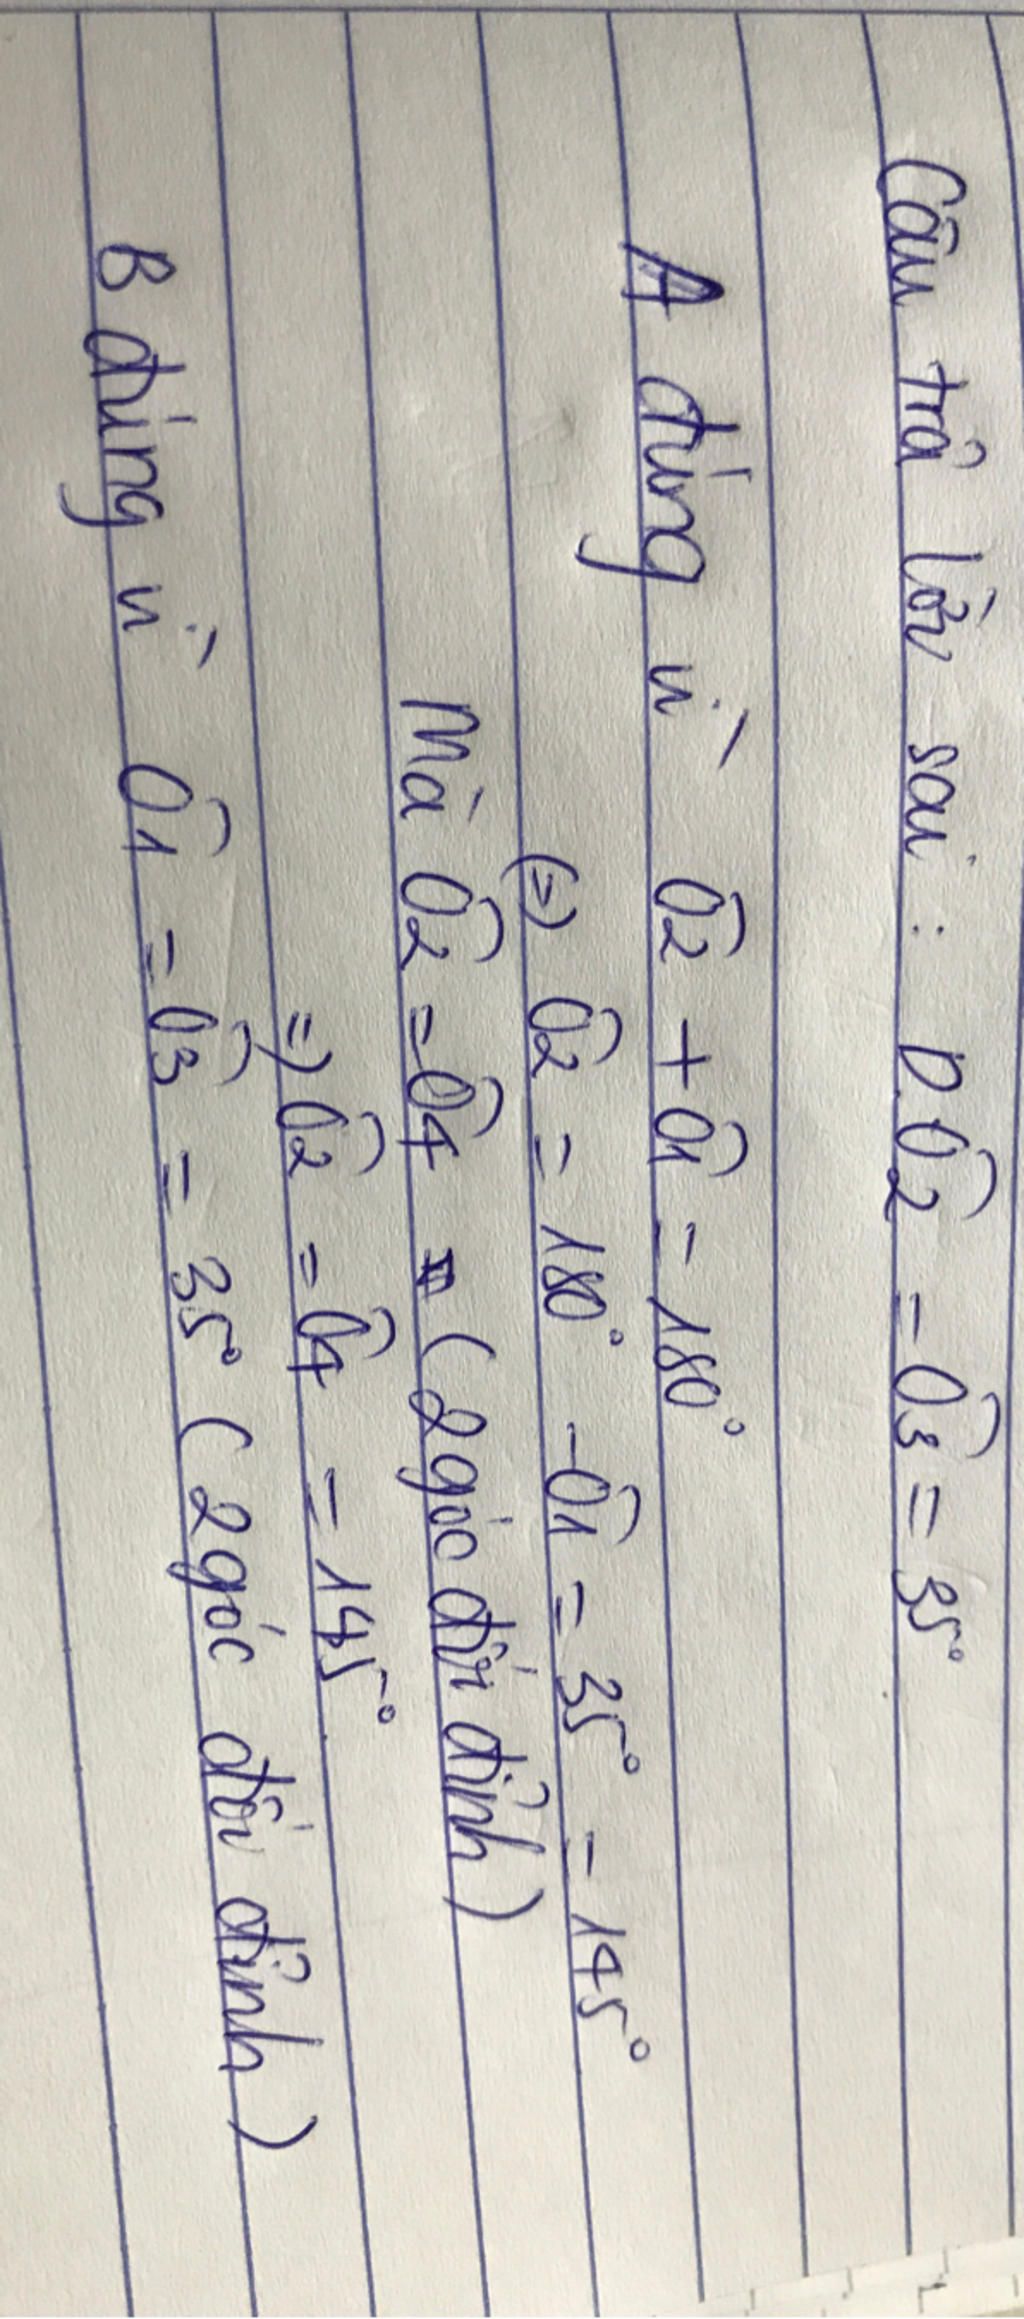 Câu trả lời sai : D. Ô2 = Ô3 = 35°
A đúng vì Ô2 + Ô1 = 180°
(=) Ô2 = 180° - Ô1 = 35° = 145°
Mà Ô2 = Ô4 = (2 góc đối đỉnh)
=) Ô2 = Ô4 = 145°
B đúng vì Ô1 = Ô3 = 35° (2 góc đối đỉnh)